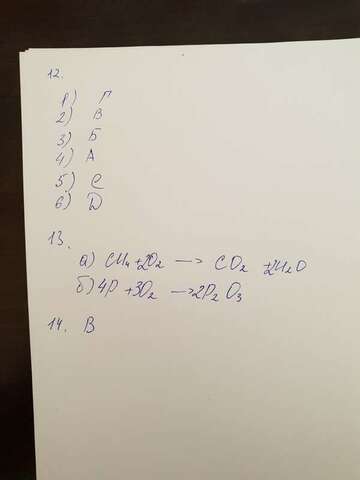 12.
1) Г
2) В
3) Б
4) А
5) С
6) D
13.
а) CH₄+2O₂ → CO₂ +2H₂O
б) 4P +3O₂ → 2P₂O₃
14. В